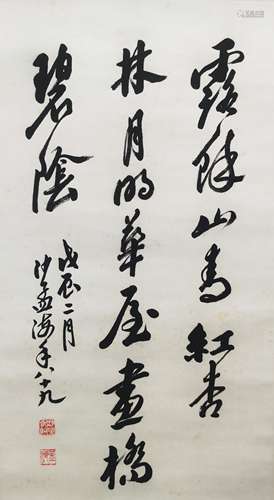 露餘山青紅杏
林月明華屋畫橋
碧陰
戊辰二月
沙孟海年八十九